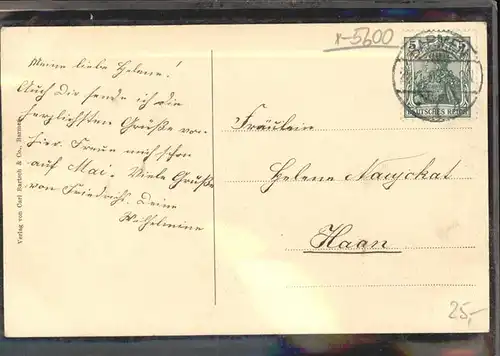 x-5600
BARMEN
5
DEUTSCHES REICH
Meine liebe Helene!
Auch Dir sende ich die
herzlichsten Grüße von
hier. Freue mich schon
auf Mai. Viele Grüße
von Friedrich. Deine
Wilhelmine
Fräulein
Helene Naujokat
Haan
Verlag von Carl Bartsch & Co., Barmen
25,-